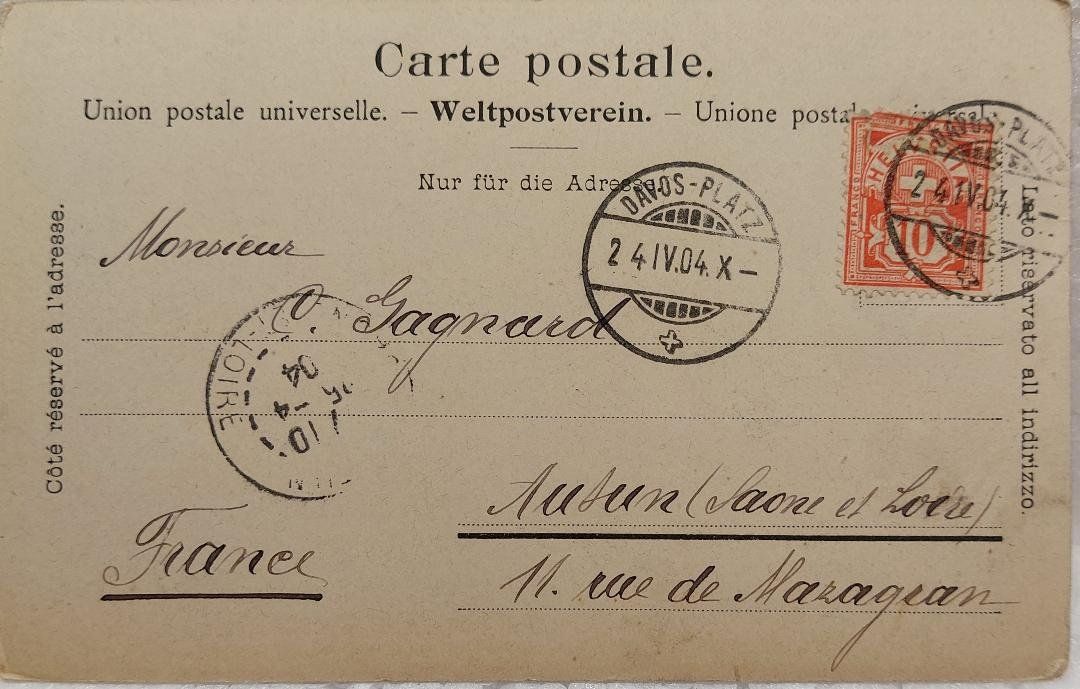 Carte postale.
Union postale universelle. – Weltpostverein. – Unione postale universale.
Nur für die Adresse.
Côté réservé à l'adresse.
Lato riservato all indirizzo.
DAVOS-PLATZ
24.IV.04.X–
HELVETIA
FRANCO
10
DAVOS-PLATZ
24.IV.04.X–
Monsieur
O. Gagnard
LOIRE
10
-4
04
Autun (Saone et Loire)
11. rue de Mazagran
France